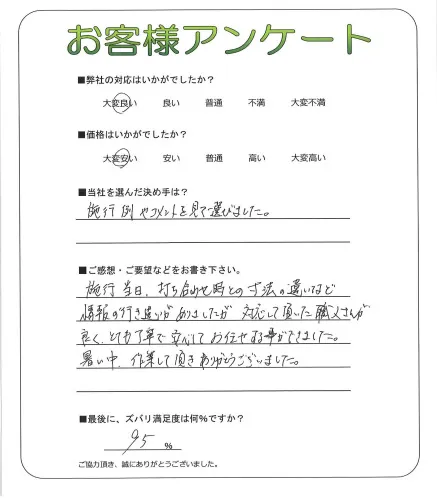 お客様アンケート
■弊社の対応はいかがでしたか？
大変良い 良い 普通 不満 大変不満
■価格はいかがでしたか？
大変安い 安い 普通 高い 大変高い
■当社を選んだ決め手は？
施行例やコメントを見て選びました。
■ご感想・ご要望などをお書き下さい。
施行当日、打ち合わせ時との寸法の違いなど
情報の行き違いがありましたが 対応して頂いた職人さんが
良く、とても丁寧で安心してお任せする事ができました。
暑い中、作業して頂きありがとうございました。
■最後に、ズバリ満足度は何％ですか？
95 ％
ご協力頂き、誠にありがとうございました。